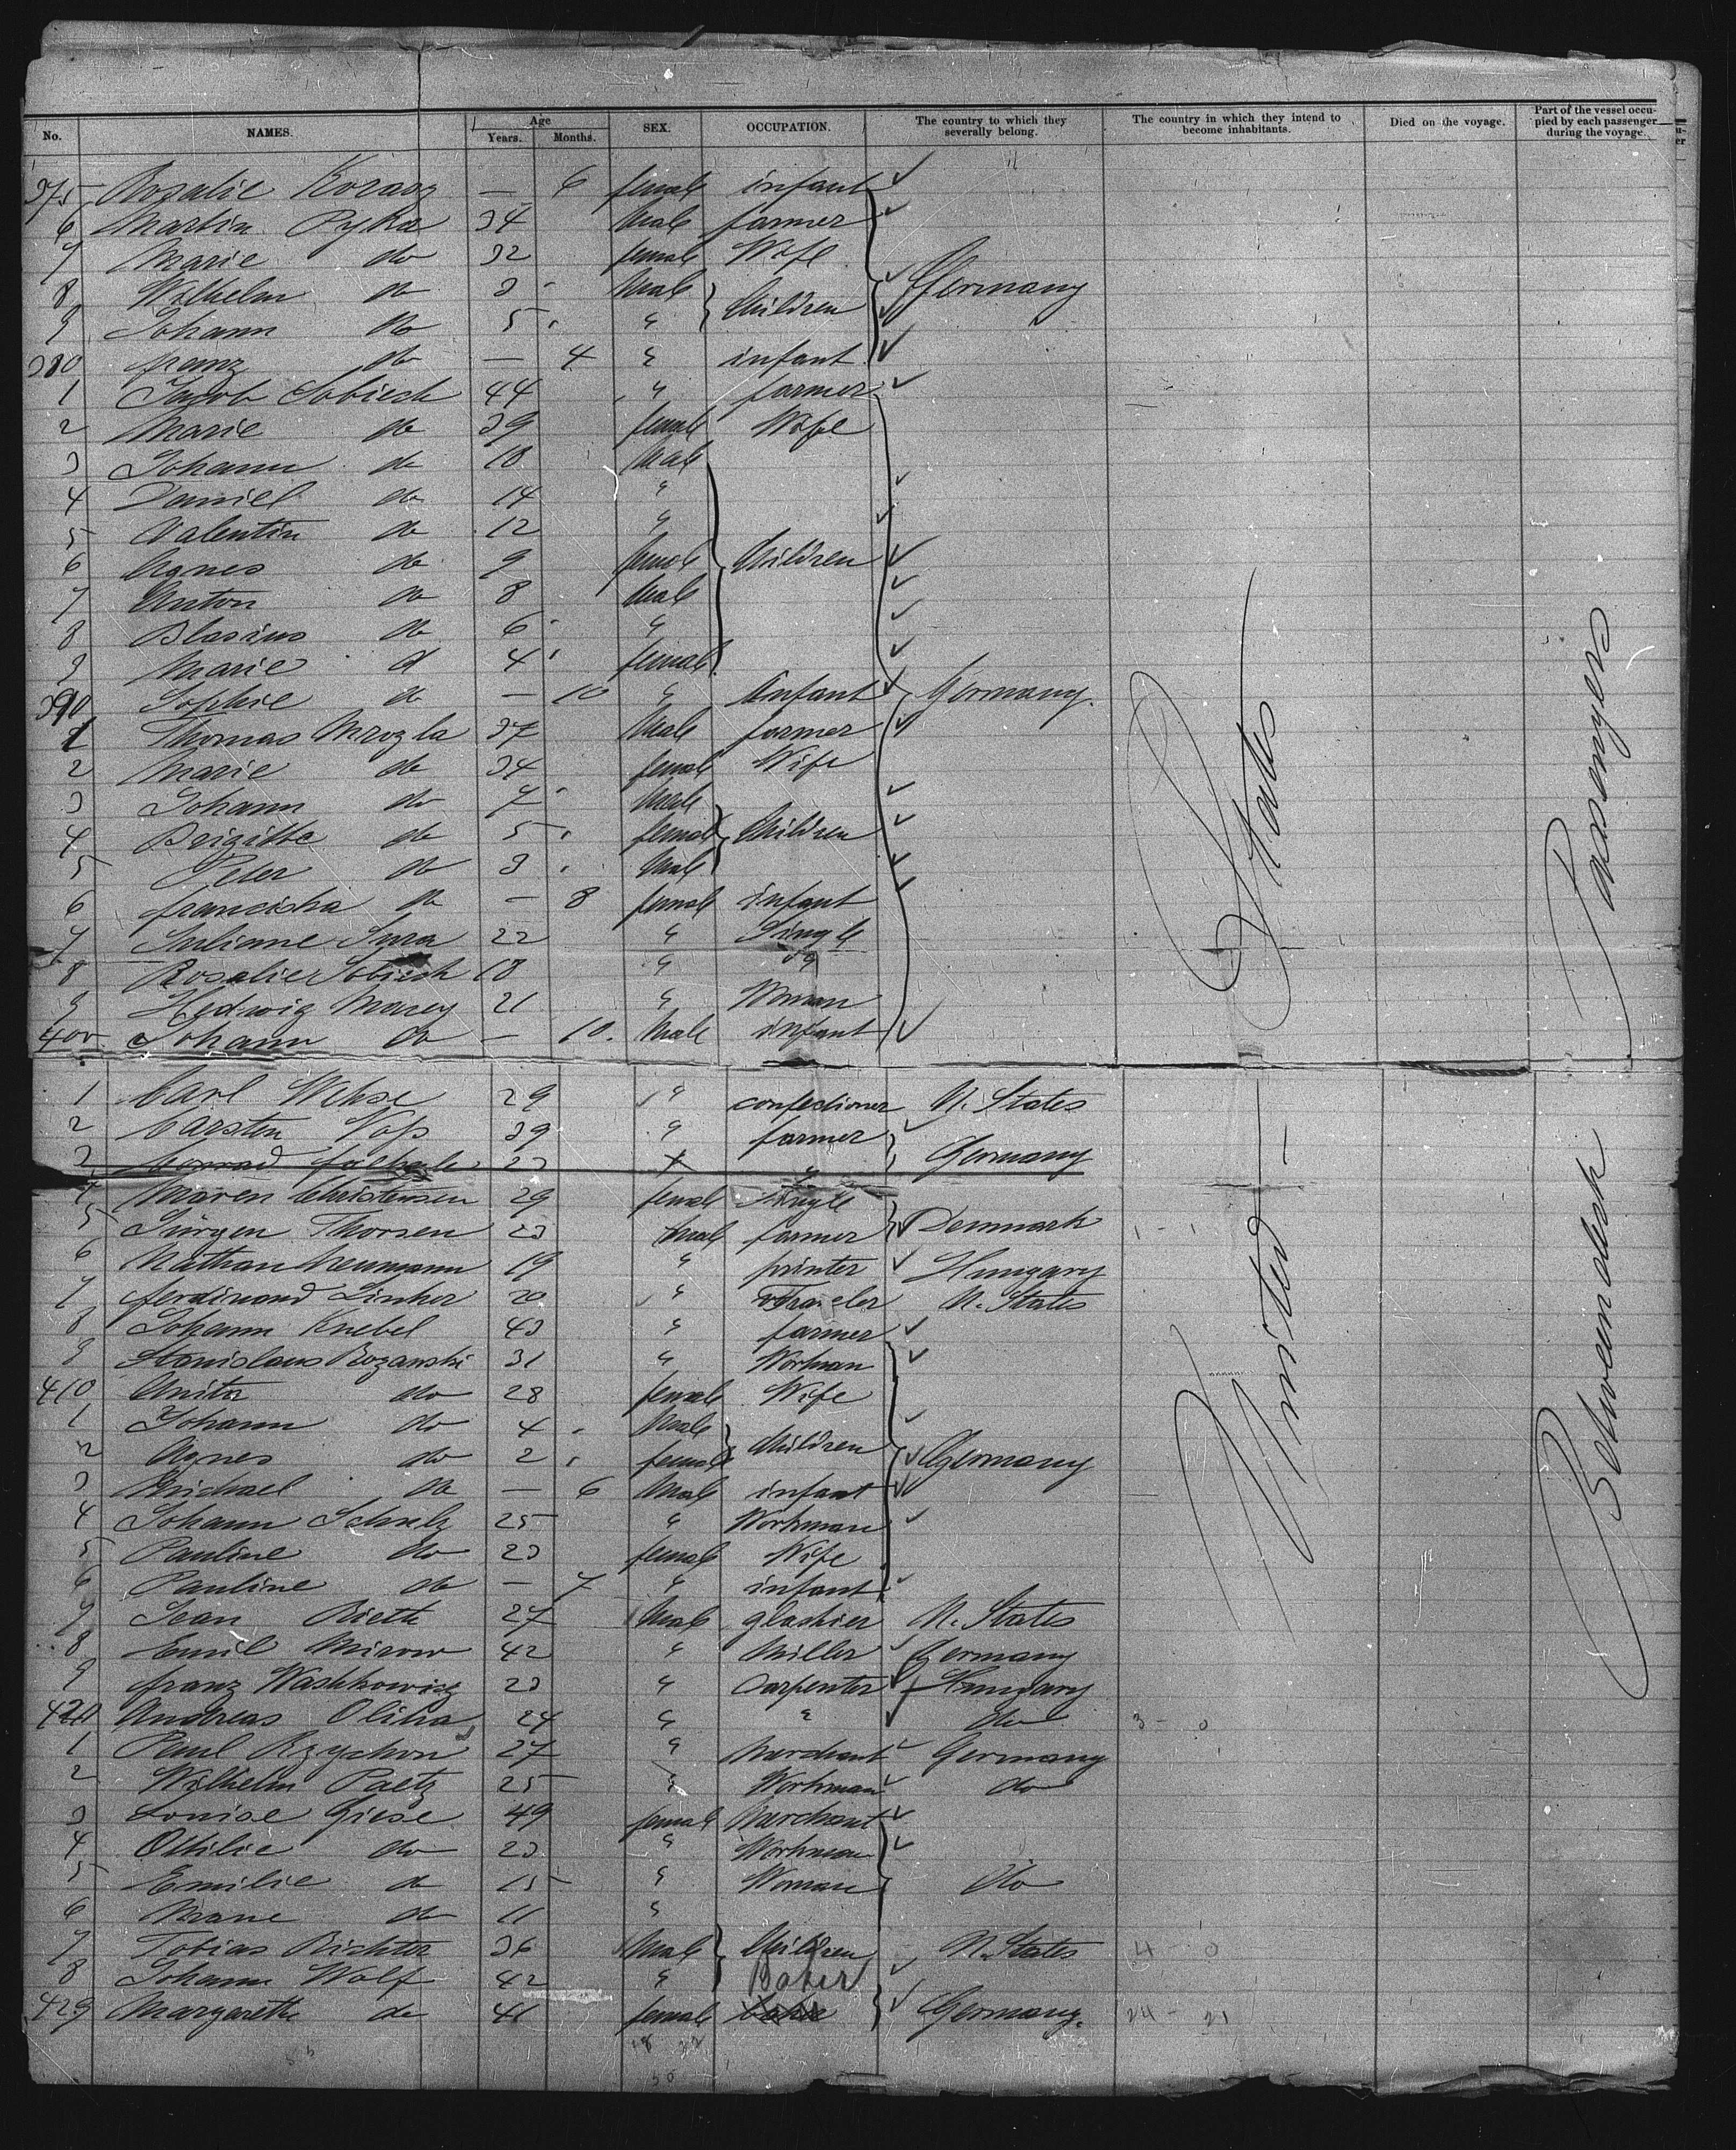 No. NAMES. Age Years. Months. SEX. OCCUPATION. The country to which they severally belong. The country in which they intend to become inhabitants. Died on the voyage. Part of the vessel occupied by each passenger during the voyage.
375 Rosalie — 6 female infant
6 Martin Pyka 34 Male farmer
7 Marie do 32 female Wife
8 Wilhelm do 3 Male Children Germany
9 Johann do 5 "
380 franz do — 4 " infant
1 Jacob Sobiech 44 " farmer
2 Marie do 39 female Wife
3 Johann do 18 Male
4 Daniel do 14 "
5 Valentin do 12 "
6 Agnes do 9 female Children
7 Anton do 8 Male
8 Blasius do 6 "
9 Marie d 4 female
390 Sophie do — 10 " Infant Germany.
1 Thomas Mrozla 37 Male farmer
2 Marie do 34 female Wife
3 Johann do 7 Male
4 Brigitta do 5 female Children
5 Peter do 3 Male
6 franciska do — 8 female infant
7 Juliane Sura 22 " Single
8 Rosalie Sobiech 18 " "
9 Hedwig Marey 21 " Woman
400 Johann do — 10. Male infant
1 Carl Wehse 29 " confectioner U. States
2 Carsten Voss 39 " farmer
3 Conrad 23 " Germany
4 Maren Christensen 29 female Single
5 Jürgen Thorsen 23 Male farmer Denmark
6 Nathan Neumann 19 " printer Hungary
7 ferdinand Linker 20 " U. States
8 Johann Knebel 43 " farmer
9 Stanislaus Rozanski 31 " Workman
410 Anita do 28 female Wife
1 Johann do 4 Male
2 Agnes do 2 female Children Germany
3 Michael do — 6 Male infant
4 Johann Schulz 25 " Workman
5 Pauline do 23 female Wife
6 Pauline do — 7 " infant
7 Jean Rieth 27 Male glashier U. States
8 Emil Mirow 42 " Miller Germany
9 franz Washkowicz 23 " Carpenter Hungary
420 Andreas Olika 24 " " do
1 Paul Rzychon 27 " Merchant Germany
2 Wilhelm Paetz 25 " Workman do
3 Louise Giese 49 female Merchant
4 Ottilie do 23 " Workman
5 Emilie do 15 " Woman do
6 Marie do 11 "
7 Tobias Richter 36 Male Children U. States
8 Johann Wolf 42 " Baker
429 Margareth do 41 female Germany.
United States
Between deck Passengers